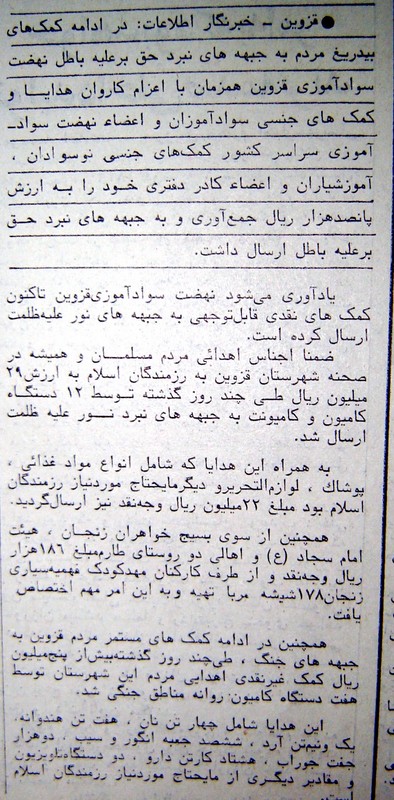 ● قزوین ـ خبرنگار اطلاعات: در ادامه کمک‌های
بیدریغ مردم به جبهه های نبرد حق برعلیه باطل نهضت
سوادآموزی قزوین همزمان با اعزام کاروان هدایـا و
کمک های جنسی سوادآموزان و اعضاء نهضت سوادـ
آموزی سراسر کشور کمک‌های جنسی نوسوادان ،
آموزشیاران و اعضاء کادر دفتری خـود را بـه ارزش
پانصدهزار ریال جمع‌آوری و به جبهه های نبرد حـق
برعلیه باطل ارسال داشت.
یادآوری می‌شود نهضت سوادآموزی‌قزوین تاکنون
کمک های نقدی قابل‌توجهی به جبهه های نور علیه‌ظلمت
ارسال کرده است.
ضمنا اجناس اهدائی مردم مسلمـان و همیشه در
صحنه شهرستان قزوین به رزمندگان اسلام به ارزش۲۹
میلیون ریال طـی چند روز گذشته توسط ۱۲ دستگـاه
کامیون و کامیونت به جبهه های نبرد نـور علیه ظلمت
ارسال شد.
به همراه این هدایا که شامل انواع مواد غذائی ،
پوشاك ، لوازم‌التحریرو دیگرمایحتاج موردنیاز رزمندگان
اسلام بود مبلغ ۲۲میلیون ریال وجه‌نقد نیز ارسال‌گردید.
همچنین از سوی بسیج خواهران زنجـان ، هیئت
امام سجاد (ع) و اهالی دو روستای طارم‌مبلغ ۱۸۶هزار
ریال وجه‌نقد و از طرف کارکنان مهدکودک فهمیه‌سیاری
زنجان۱۷۸شیشه مربـا تهیه وبه این امر مهم اختصاص
یافت.
همچنین در ادامه کمک های مستمر مردم قزوین به
جبهه های جنگ ، طی‌چند روز گذشته‌بیش‌از پنج‌میلیون
ریال کمک غیرنقدی اهدایی مردم این شهرستان توسط
هفت دستگاه کامیون روانه مناطق جنگی شد.
این هدایا شامل چهار تن نان ، هفت تن هندوانه،
یک ونیم‌تن آرد ، ششصد جعبه انگور و سیب ، دوهزار
جفت جوراب ، هشتاد کارتن دارو ، دو دستگاه‌تلویزیون
و مقادیر دیگـری از مایحتاج موردنیاز رزمندگان اسلام